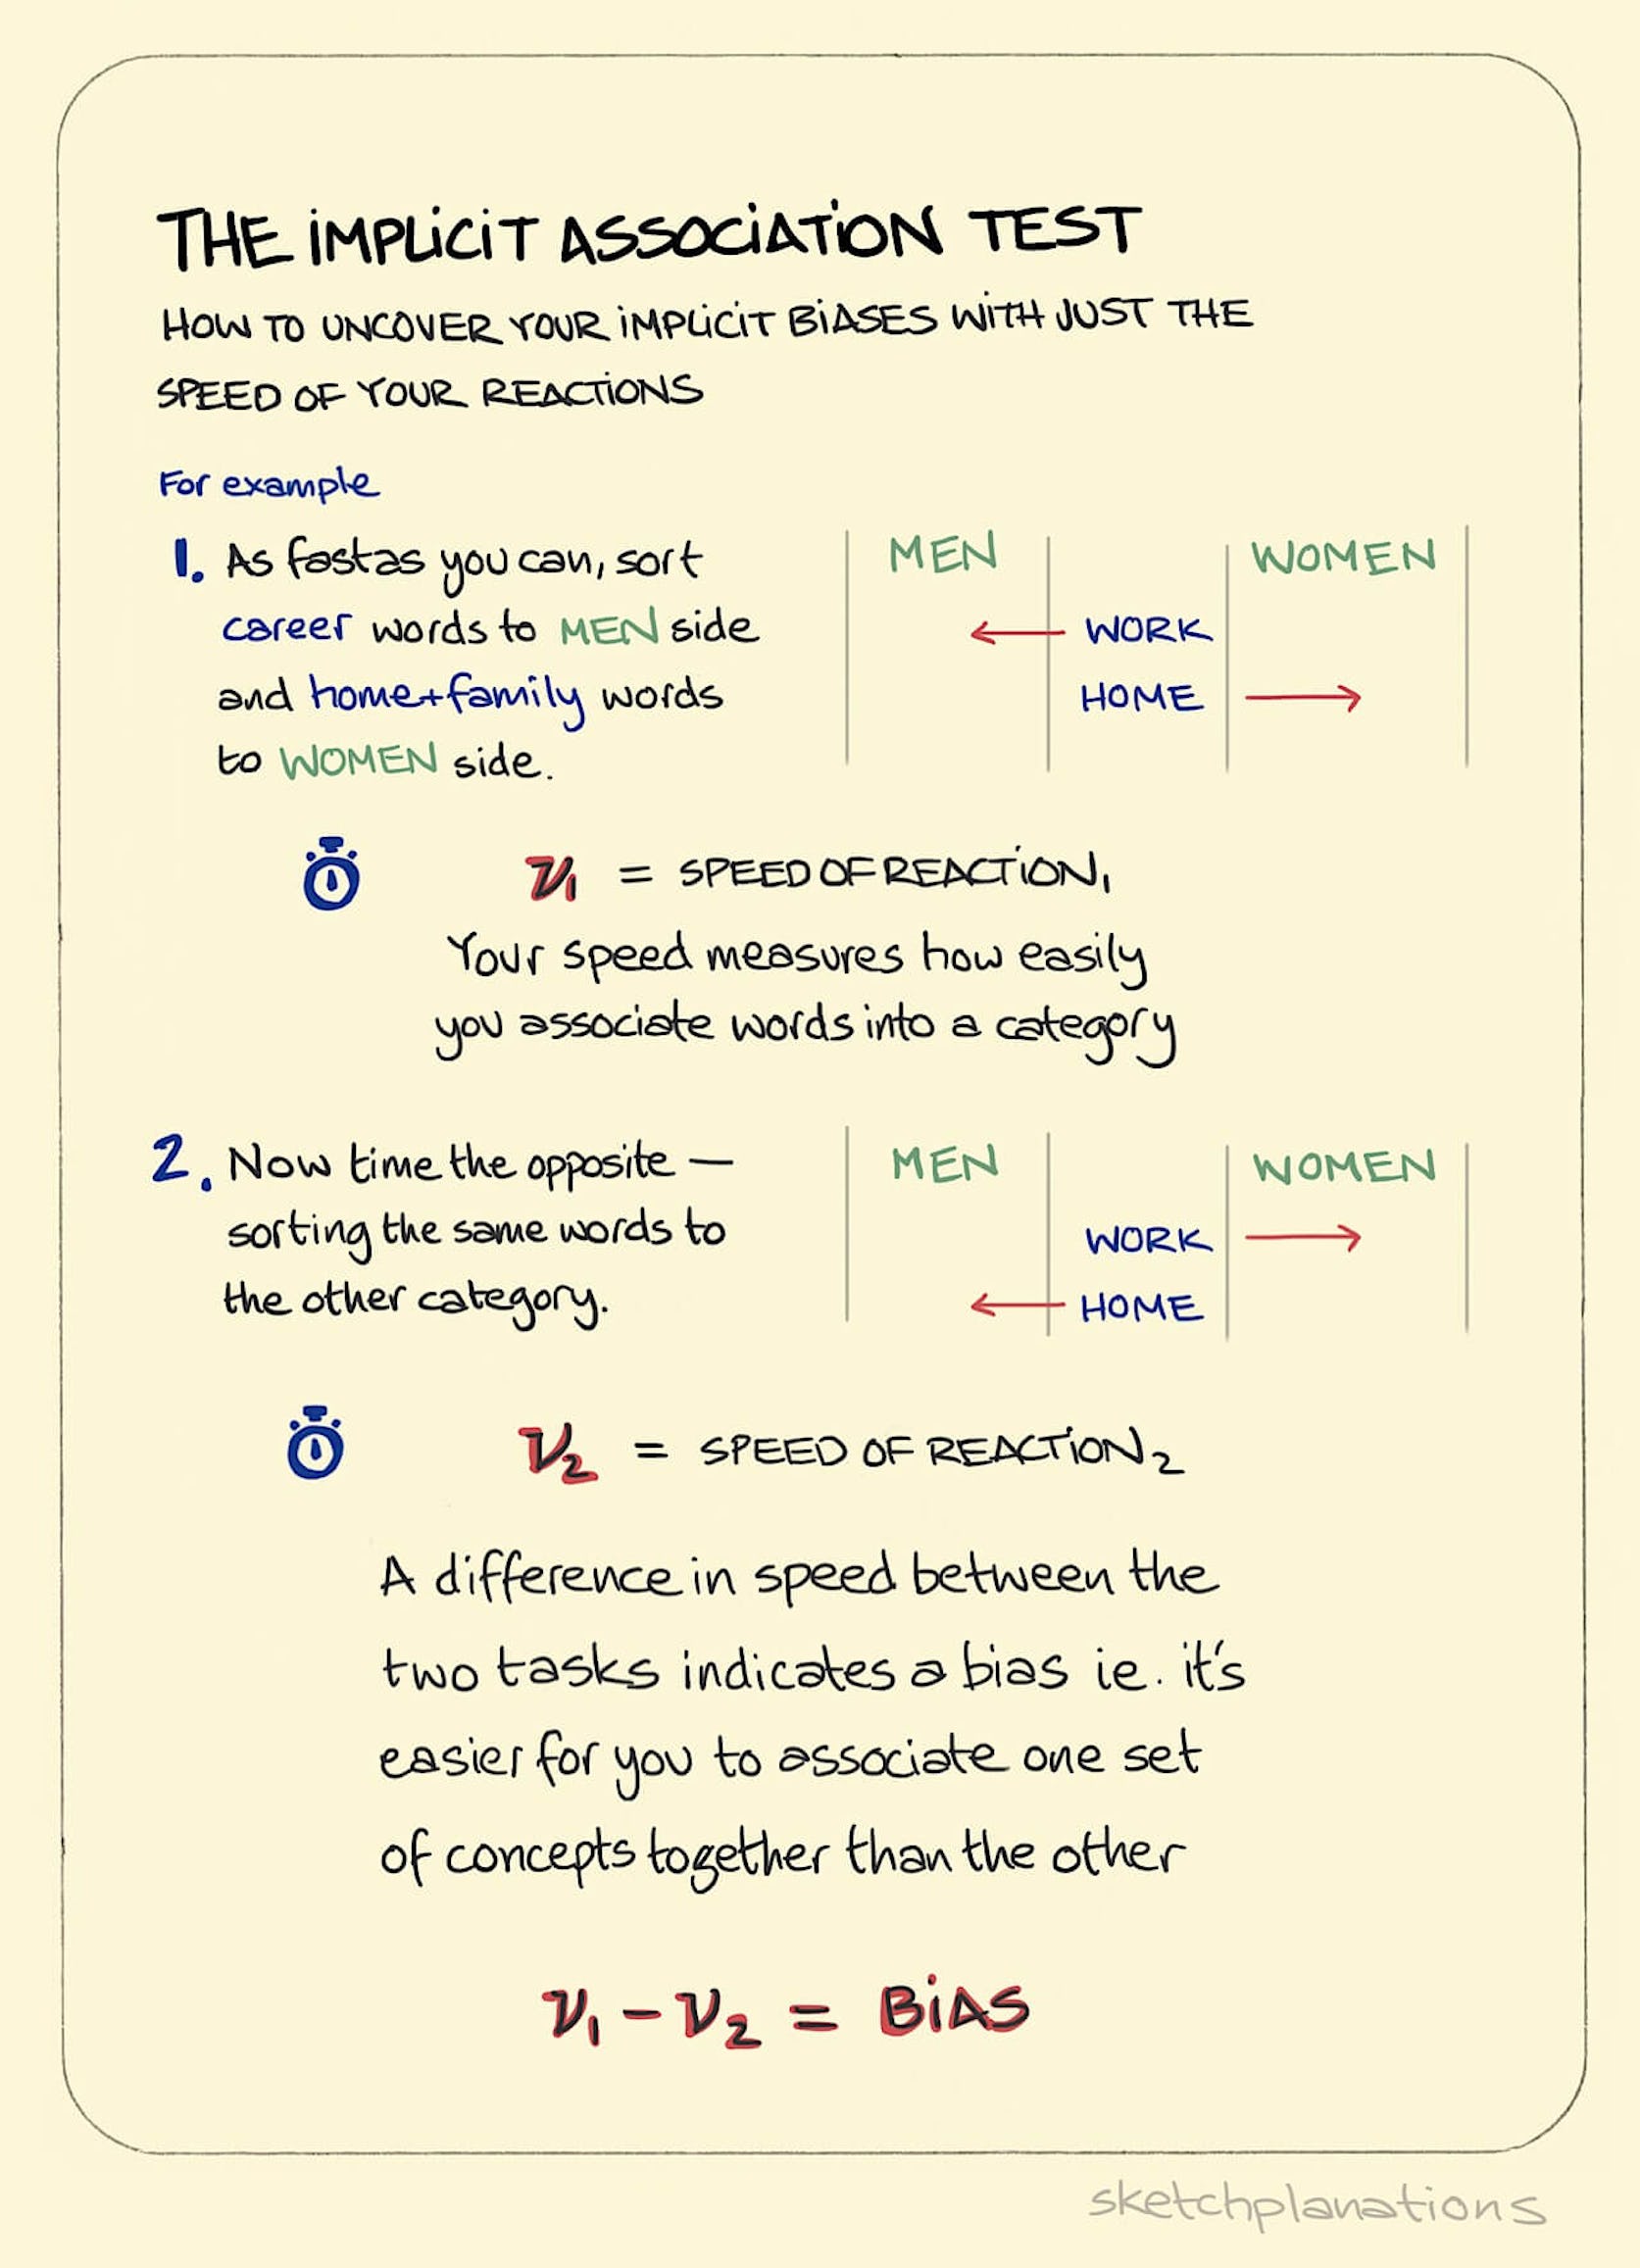 THE IMPLICIT ASSOCIATION TEST
HOW TO UNCOVER YOUR IMPLICIT BIASES WITH JUST THE
SPEED OF YOUR REACTIONS
For example
1. As fast as you can, sort
career words to MEN side
and home+family words
to WOMEN side.
MEN WOMEN
WORK
HOME
V1 = SPEED OF REACTION1
Your speed measures how easily
you associate words into a category
2. Now time the opposite —
sorting the same words to
the other category.
MEN WOMEN
WORK
HOME
V2 = SPEED OF REACTION2
A difference in speed between the
two tasks indicates a bias ie. it's
easier for you to associate one set
of concepts together than the other
V1 - V2 = BIAS
sketchplanations